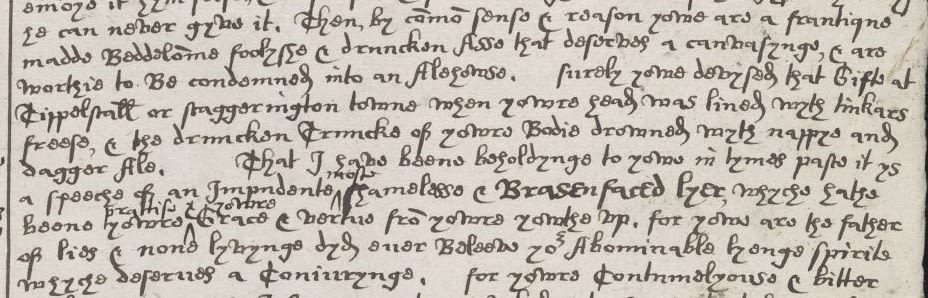 he can never gyve it. Then, by cōmō sense & reason yowe are a frantique
madde Beddelōme foolyshe & druncken Asse that deserves a canvasynge, & are
worthie to Be condemned into an Alehowse. surely yowe devysed that Gifte at
Tippelstall or staggerington towne when yowre head was lined wyth tinkars
freese, & the druncken Truncke of yowre Bodie drowned wyth nappye and
dagger Ale. That I have beene beholdynge to yowe in tymes paste it ys
a speeche of an Impudente, moste shamelesse & Brasenfaced lyer, whyche hathe
beene yowre practise & yowre Grace & vertue frō yowre yowthe vp. for yowe are the father
of lies & none lyvynge dyd ever Beleeve yor Abominable lyenge spirite
whyche deserves a Coniurynge. for yowre Contumelyouse & bitter